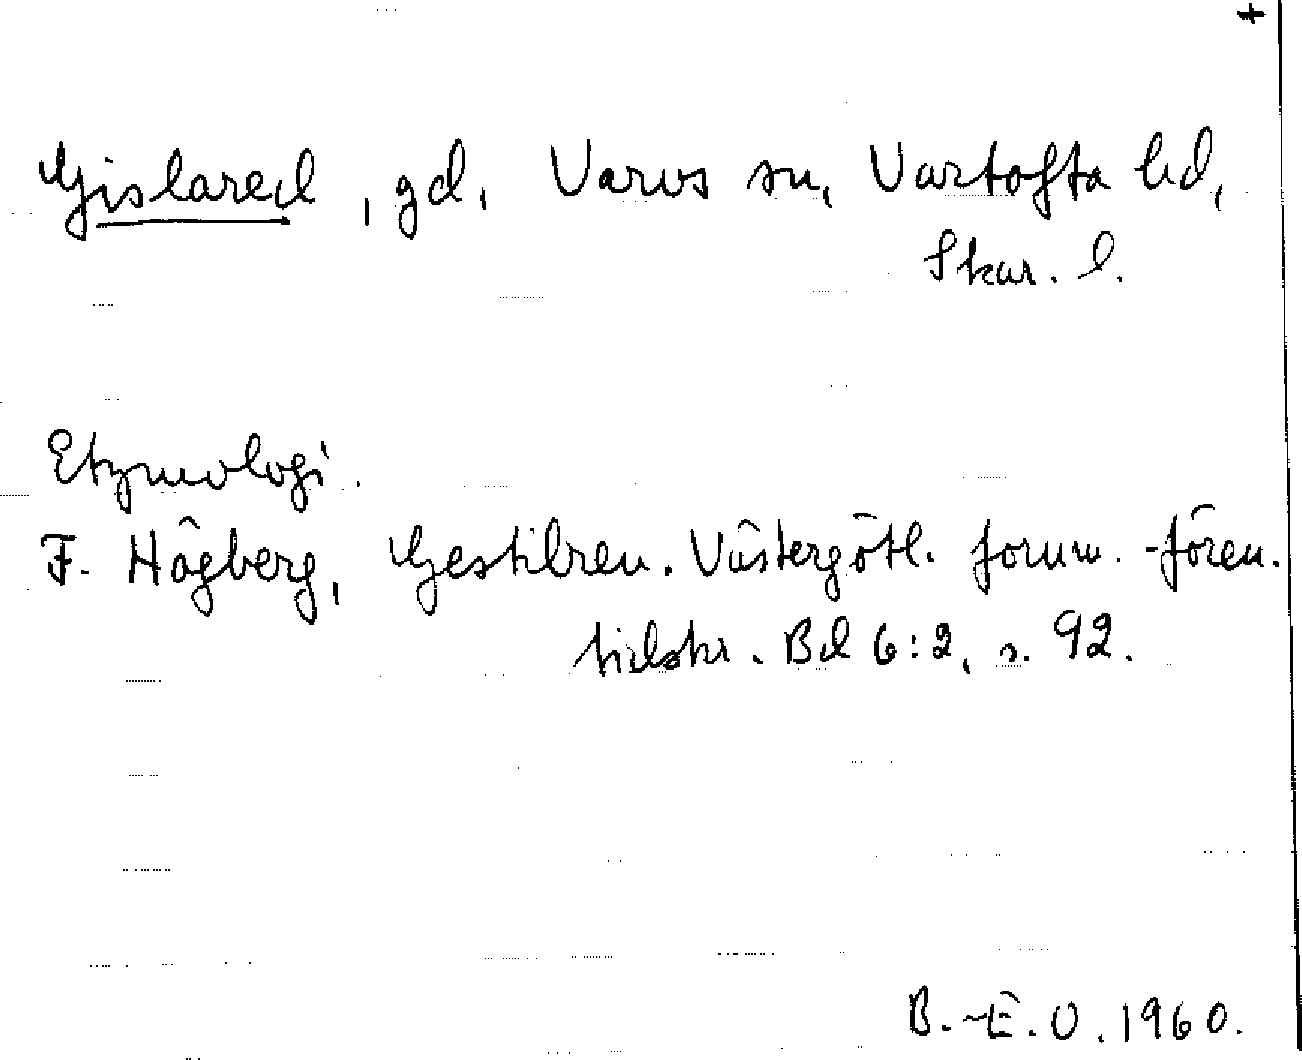 +
Gislared, gd, Varvs sn, Vartofta hd,
Skar. l.
Etymologi.
F. Högberg, Gestilren. Västergötl. fornm.-fören.
tidskr. Bd 6:2, s. 92.
B.-E. O. 1960.